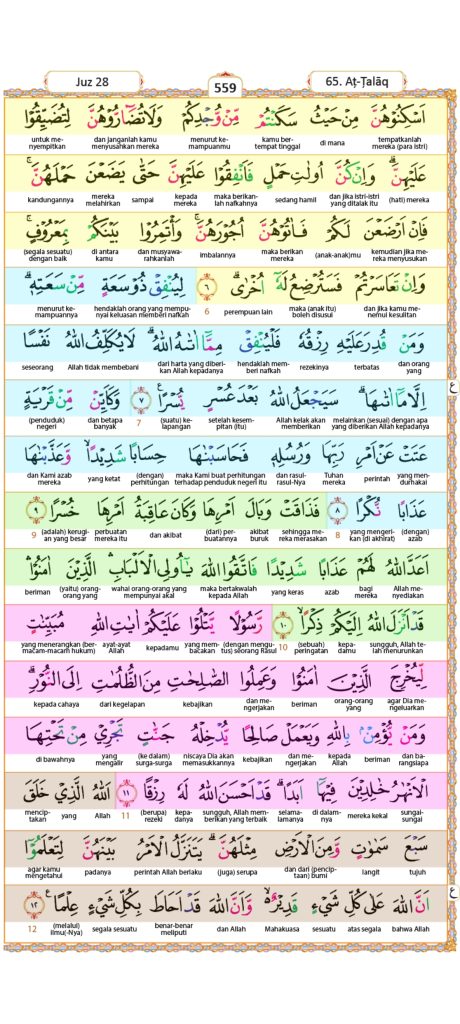 Juz 28
559
65. Aṭ-Ṭalāq
اَسْكِنُوْهُنَّ مِنْ حَيْثُ سَكَنْتُمْ مِّنْ وُّجْدِكُمْ وَلَا تُضَاۤرُّوْهُنَّ لِتُضَيِّقُوْا
tempatkanlah mereka (para istri) di mana kamu ber-tempat tinggal menurut ke-mampuanmu dan janganlah kamu menyusahkan mereka untuk me-nyempitkan
عَلَيْهِنَّۗ وَاِنْ كُنَّ اُولٰتِ حَمْلٍ فَاَنْفِقُوْا عَلَيْهِنَّ حَتّٰى يَضَعْنَ حَمْلَهُنَّۚ
(hati) mereka dan jika istri-istri yang ditalak itu sedang hamil maka berikan-lah nafkahnya kepada mereka sampai mereka melahirkan kandungannya
فَاِنْ اَرْضَعْنَ لَكُمْ فَاٰتُوْهُنَّ اُجُوْرَهُنَّۚ وَأْتَمِرُوْا بَيْنَكُمْ بِمَعْرُوْفٍۚ
kemudian jika me-reka menyusukan (anak-anak)mu maka berikan mereka imbalannya dan musyawa-rahkanlah di antara kamu (segala sesuatu) dengan baik
وَاِنْ تَعَاسَرْتُمْ فَسَتُرْضِعُ لَهٗٓ اُخْرٰىۗ ٦ لِيُنْفِقْ ذُوْ سَعَةٍ مِّنْ سَعَتِهٖۗ
dan jika kamu me-nemui kesulitan maka (anak itu) boleh disusui perempuan lain 6 hendaklah orang yang mempu-nyai keluasan memberi nafkah menurut ke-mampuannya
وَمَنْ قُدِرَ عَلَيْهِ رِزْقُهٗ فَلْيُنْفِقْ مِمَّآ اٰتٰىهُ اللّٰهُۗ لَا يُكَلِّفُ اللّٰهُ نَفْسًا
dan orang yang terbatas rezekinya hendaklah mem-beri nafkah dari harta yang diberi-kan Allah kepadanya Allah tidak membebani seseorang
اِلَّا مَآ اٰتٰىهَاۗ سَيَجْعَلُ اللّٰهُ بَعْدَ عُسْرٍ يُّسْرًاࣖ ٧ وَكَاَيِّنْ مِّنْ قَرْيَةٍ
melainkan (sesuai) dengan apa yang diberikan Allah kepadanya Allah kelak akan memberikan setelah kesem-pitan (itu) (suatu) ke-lapangan 7 dan betapa banyak (penduduk) negeri
عَتَتْ عَنْ اَمْرِ رَبِّهَا وَرُسُلِهٖ فَحَاسَبْنٰهَا حِسَابًا شَدِيْدًاۙ وَّعَذَّبْنٰهَا
yang men-durhakai perintah Tuhan mereka dan rasul-rasul-Nya maka Kami buat perhitungan terhadap penduduk negeri itu (dengan) perhitungan yang ketat dan Kami azab mereka
عَذَابًا نُّكْرًا ٨ فَذَاقَتْ وَبَالَ اَمْرِهَا وَكَانَ عَاقِبَةُ اَمْرِهَا خُسْرًا ٩
(dengan) azab yang mengeri-kan (di akhirat) 8 sehingga me-reka merasakan akibat buruk (dari) per-buatannya dan akibat perbuatan mereka itu (adalah) kerugi-an yang besar 9
اَعَدَّ اللّٰهُ لَهُمْ عَذَابًا شَدِيْدًا فَاتَّقُوا اللّٰهَ يٰٓاُولِى الْاَلْبَابِۛ الَّذِيْنَ اٰمَنُوْاۛ
Allah me-nyediakan bagi mereka azab yang keras maka bertakwalah kepada Allah wahai orang-orang yang mempunyai akal (yaitu) orang-orang yang beriman
قَدْ اَنْزَلَ اللّٰهُ اِلَيْكُمْ ذِكْرًاۙ ١٠ رَّسُوْلًا يَّتْلُوْا عَلَيْكُمْ اٰيٰتِ اللّٰهِ مُبَيِّنٰتٍ
sungguh, Allah te-lah menurunkan kepa-damu (sebuah) peringatan 10 (dengan mengu-tus) seorang Rasul yang mem-bacakan kepadamu ayat-ayat Allah yang menerangkan (ber-macam-macam hukum)
لِّيُخْرِجَ الَّذِيْنَ اٰمَنُوْا وَعَمِلُوا الصّٰلِحٰتِ مِنَ الظُّلُمٰتِ اِلَى النُّوْرِۗ
agar Dia me-ngeluarkan orang-orang yang beriman dan me-ngerjakan kebajikan dari kegelapan kepada cahaya
وَمَنْ يُّؤْمِنْۢ بِاللّٰهِ وَيَعْمَلْ صَالِحًا يُّدْخِلْهُ جَنّٰتٍ تَجْرِيْ مِنْ تَحْتِهَا
dan ba-rangsiapa beriman kepada Allah dan me-ngerjakan kebajikan niscaya Dia akan memasukkannya (ke dalam) surga-surga yang mengalir di bawahnya
الْاَنْهٰرُ خٰلِدِيْنَ فِيْهَآ اَبَدًاۗ قَدْ اَحْسَنَ اللّٰهُ لَهٗ رِزْقًا ١١ اَللّٰهُ الَّذِيْ خَلَقَ
sungai-sungai mereka kekal di dalam-nya selama-lamanya sungguh, Allah mem-berikan yang terbaik kepa-danya (berupa) rezeki 11 Allah yang mencip-takan
سَبْعَ سَمٰوٰتٍ وَّمِنَ الْاَرْضِ مِثْلَهُنَّۗ يَتَنَزَّلُ الْاَمْرُ بَيْنَهُنَّ لِتَعْلَمُوْٓا
tujuh langit dan dari (pencip-taan) bumi (juga) serupa perintah Allah berlaku padanya agar kamu mengetahui
اَنَّ اللّٰهَ عَلٰى كُلِّ شَيْءٍ قَدِيْرٌ ەۙ وَّاَنَّ اللّٰهَ قَدْ اَحَاطَ بِكُلِّ شَيْءٍ عِلْمًاࣖ ١٢
bahwa Allah atas segala sesuatu Mahakuasa dan Allah benar-benar meliputi segala sesuatu (melalui) ilmu(-Nya) 12
ع
ع